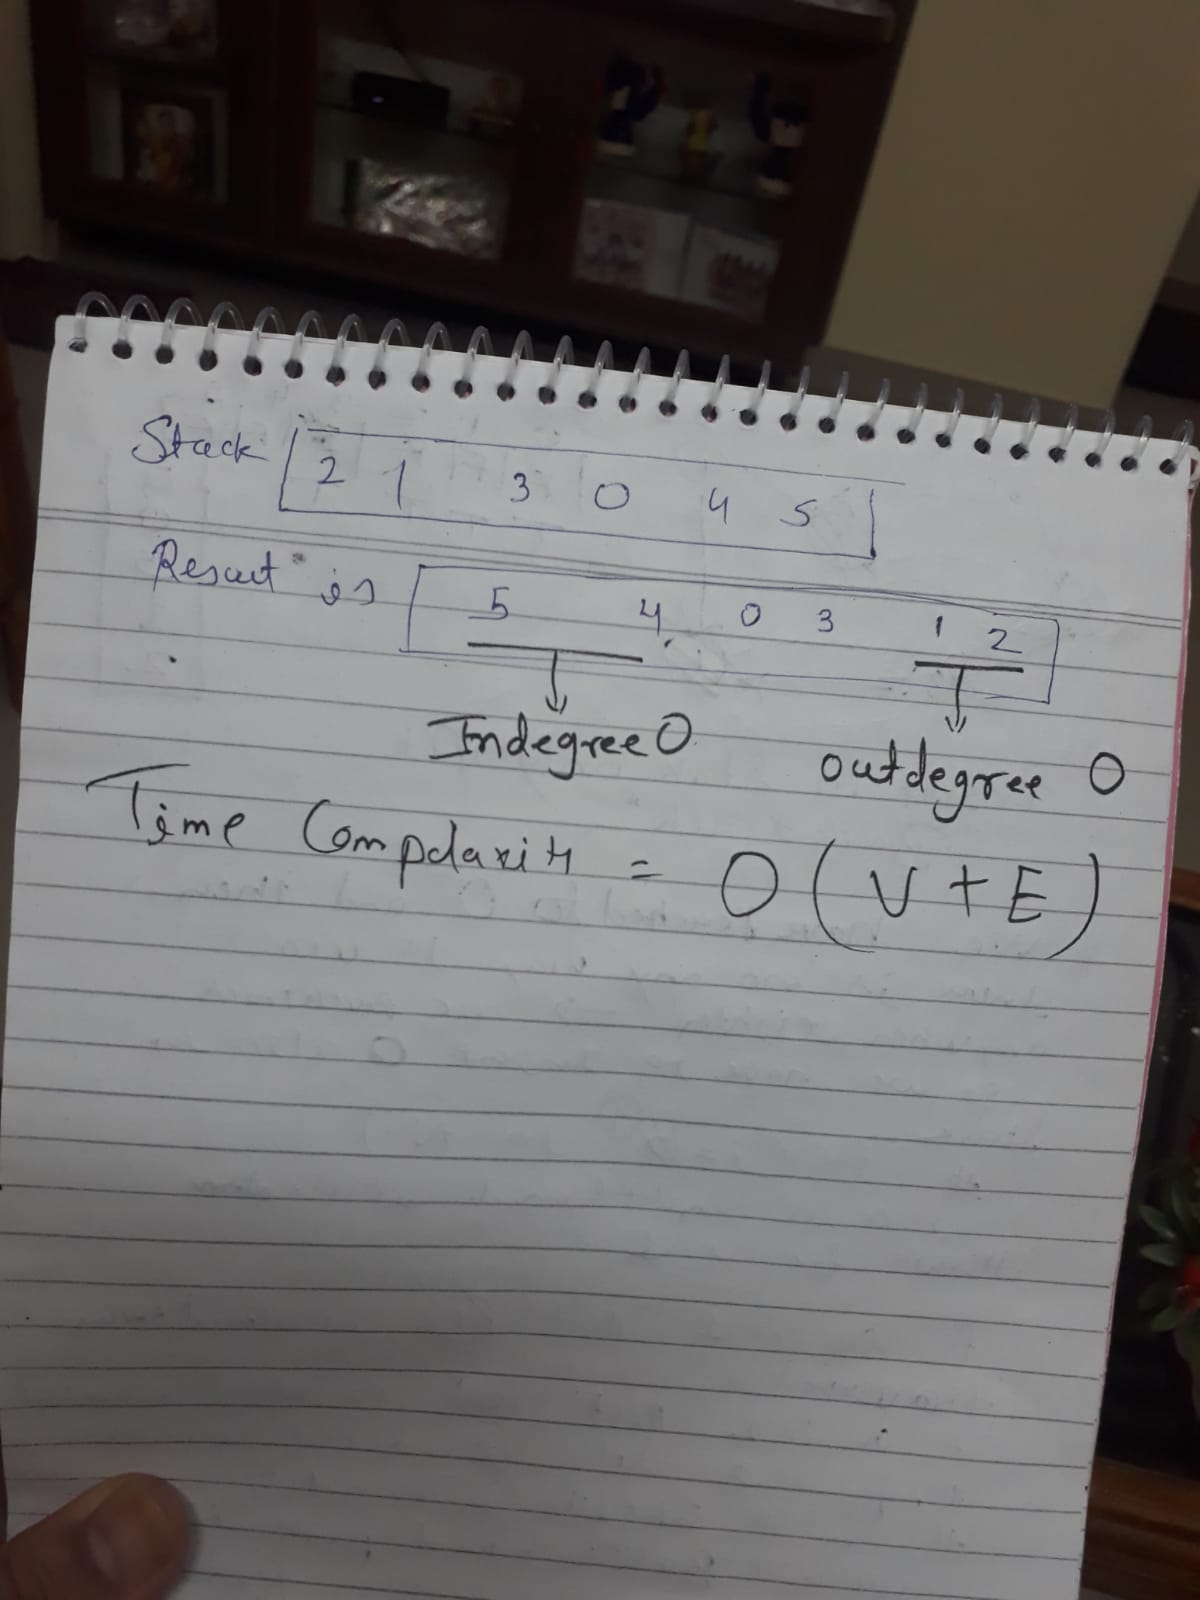 Stack 2 1 3 0 4 5
Result is 5 4 0 3 1 2
Indegree 0 outdegree 0
Time Compdaxity = O(V+E)